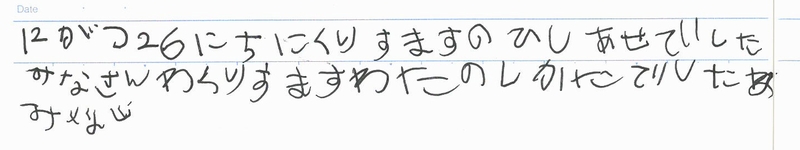 Date
12がつ26にちにくりすますのひしあせでいした
みなさんわくりすますわたのしかたでいしたか
みな